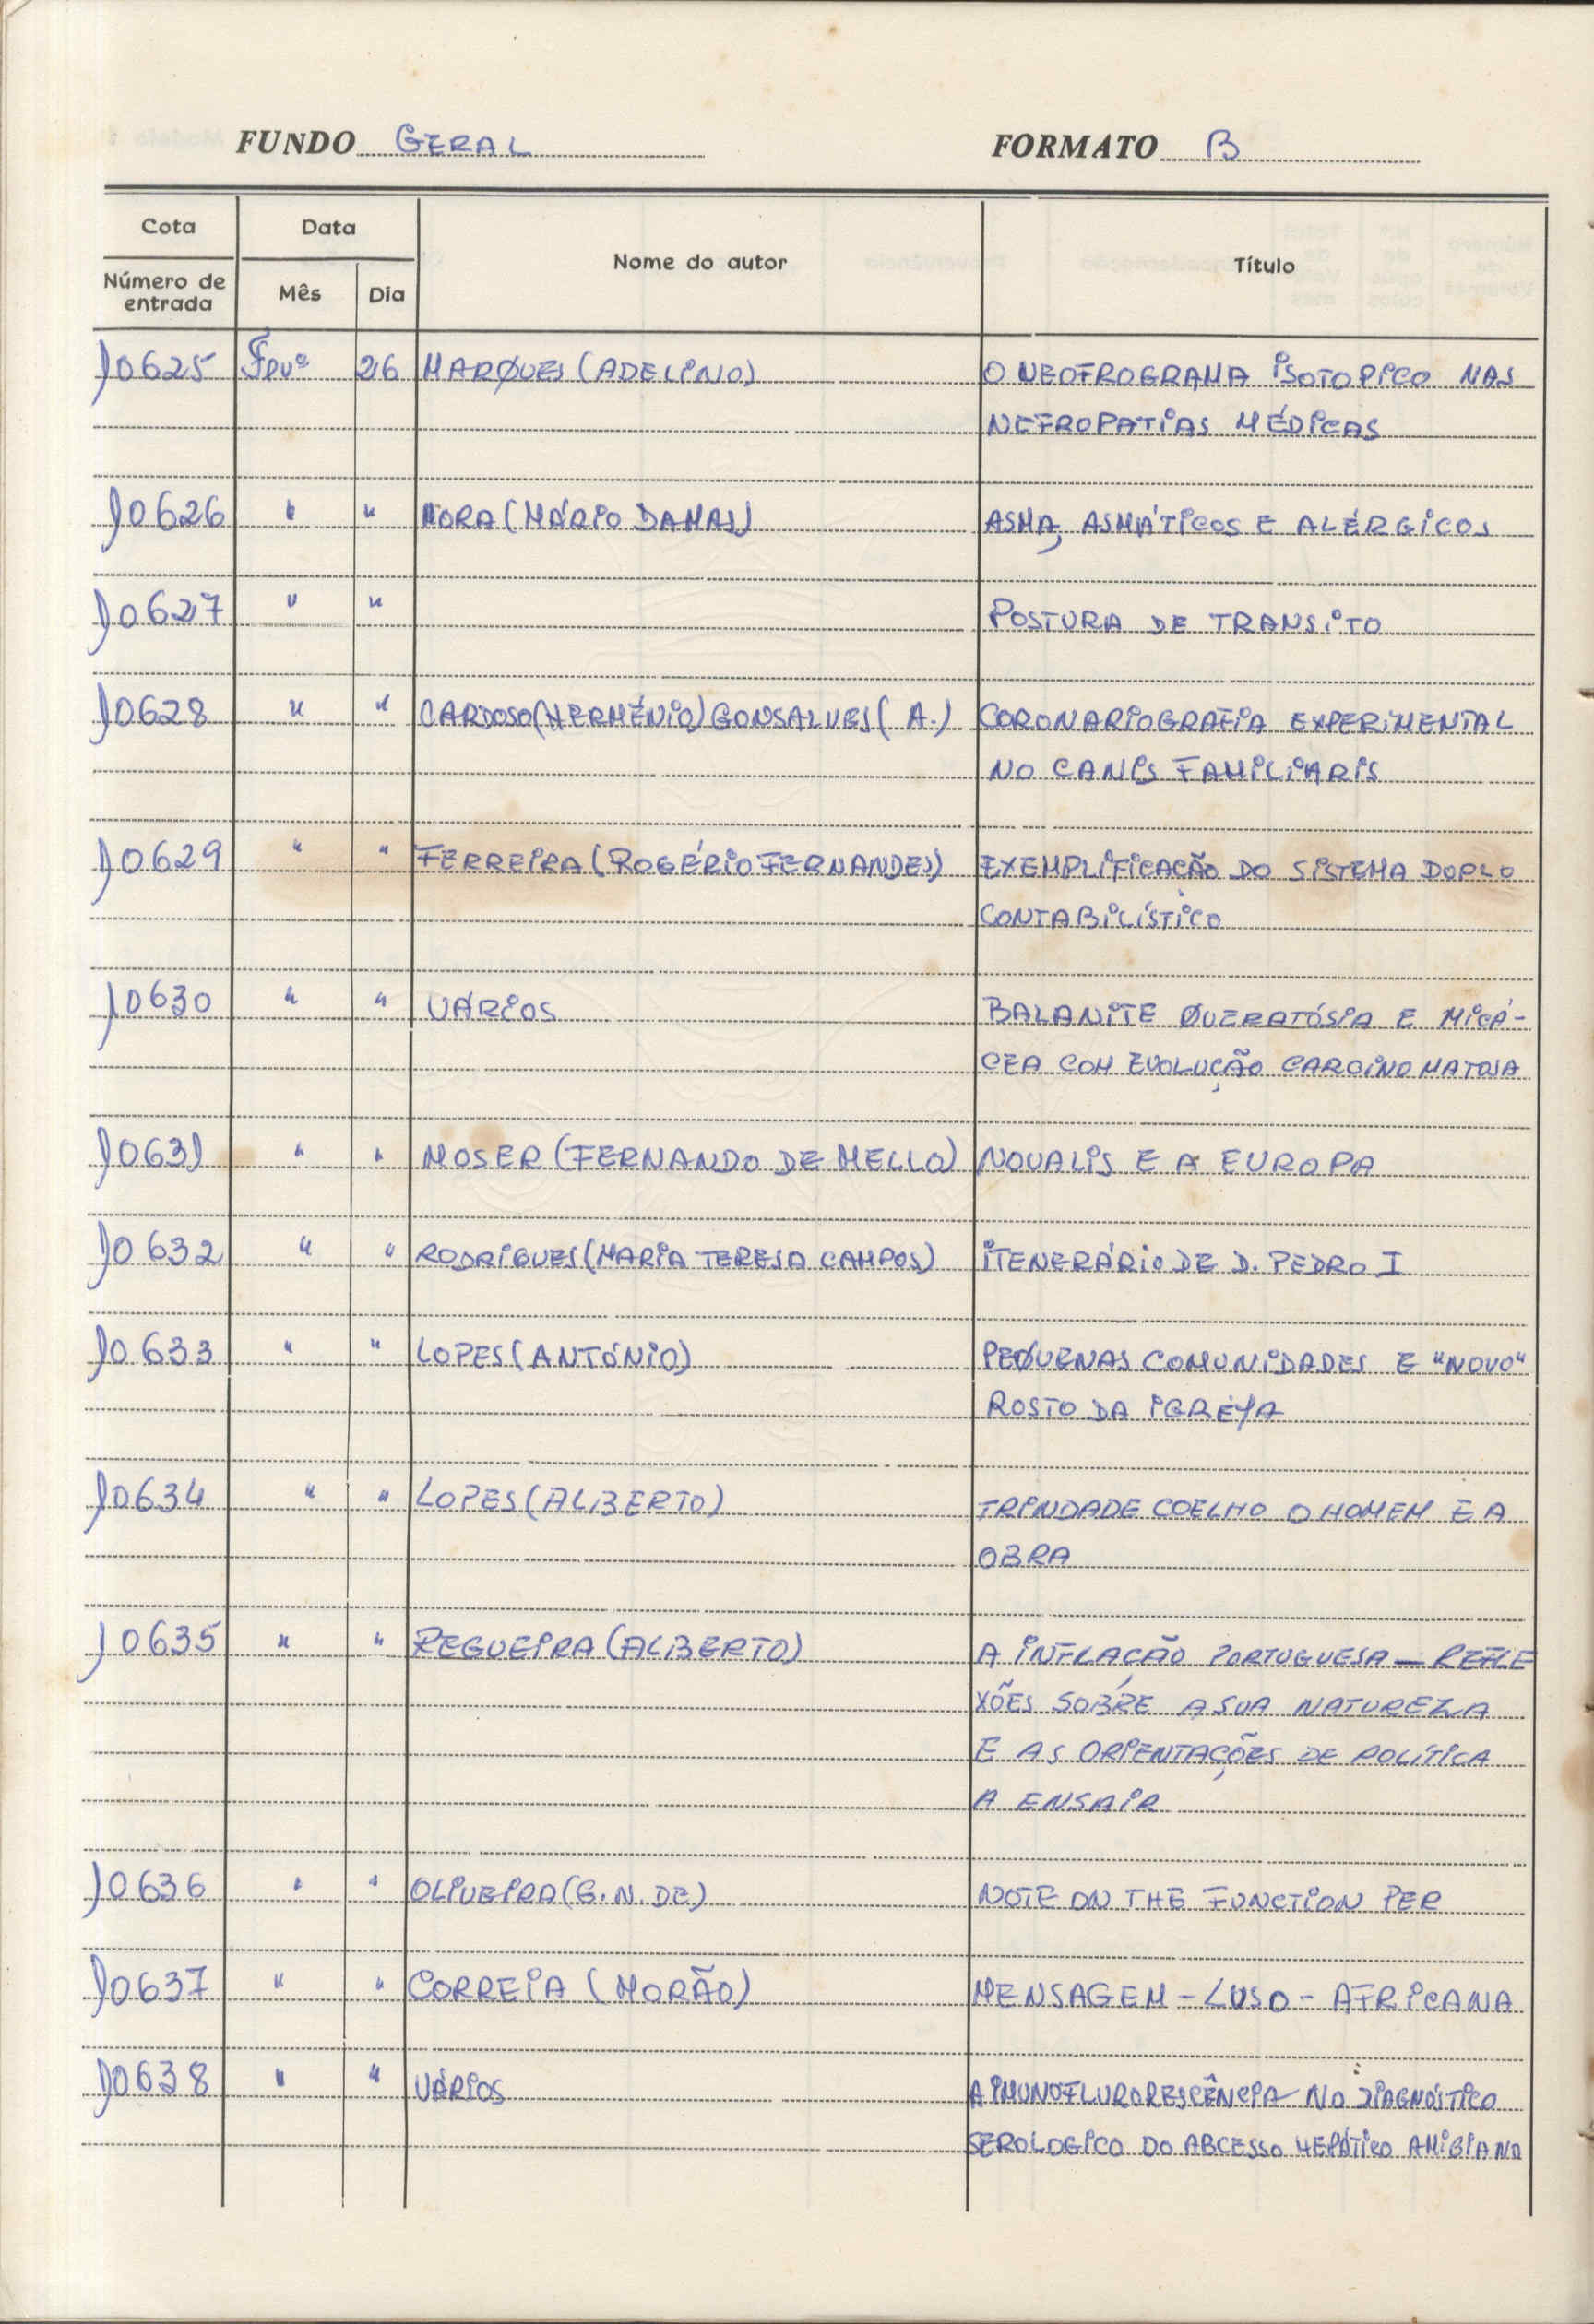 FUNDO GERAL FORMATO B
Cota Data Nome do autor Título
Número de entrada Mês Dia
10625 Fevº 26 MARQUES (ADELINO) O NEOFROGRAMA ISOTOPICO NAS
NEFROPATIAS MÉDICAS
10626 " " MORA (MÁRIO DAMAS) ASMA, ASMÁTICOS E ALÉRGICOS
10627 " " POSTURA DE TRANSITO
10628 " " CARDOSO (HERMÉNIO) GONSALVES (A.) CORONARIOGRAFIA EXPERIMENTAL
NO CANIS FAMILIARIS
10629 " " FERREIRA (ROGÉRIO FERNANDES) EXEMPLIFICAÇÃO DO SISTEMA DOPLO
CONTABILÍSTICO
10630 " " VÁRIOS BALANITE QUERATÓSIA E MICÁ-
CEA COM EVOLUÇÃO CARCINOMATOSA
10631 " " MOSER (FERNANDO DE MELLO) NOVALIS E A EUROPA
10632 " " RODRIGUES (MARIA TERESA CAMPOS) ITENERÁRIO DE D. PEDRO I
10633 " " LOPES (ANTÓNIO) PEQUENAS COMUNIDADES E "NOVO"
ROSTO DA IGREJA
10634 " " LOPES (ALBERTO) TRINDADE COELHO O HOMEM E A
OBRA
10635 " " REGUEIRA (ALBERTO) A INFLAÇÃO PORTUGUESA — REFLE
XÕES SOBRE A SUA NATUREZA
E AS ORIENTAÇÕES DE POLÍTICA
A ENSAIR
10636 " " OLIVEIRA (G. N. DE) NOTE ON THE FUNCTION PER
10637 " " CORREIA (MORÃO) MENSAGEM - LUSO - AFRICANA
10638 " " VÁRIOS A IMUNOFLURORESCÊNCIA NO DIAGNÓSTICO
SEROLOGICO DO ABCESSO HEPÁTICO AMIBIANO